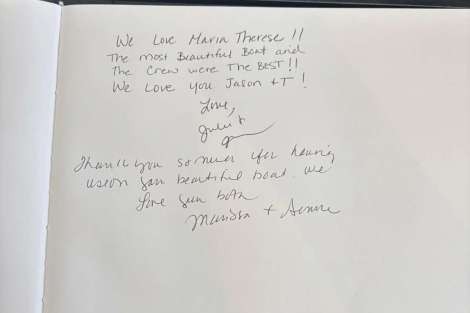 We Love Maria Therese !!
The most Beautiful Boat and
The Crew were The BEST !!
We Love you Jason + T !
Love,
Julie +
Thank you so much for having
us on your beautiful boat. We
love you both
Marissa +